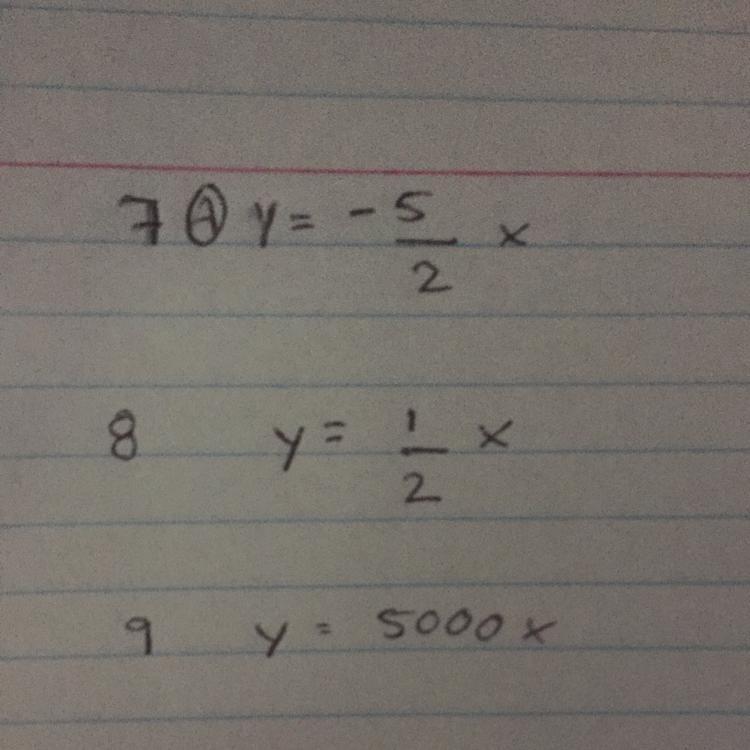 7 Ⓐ y = -5/2 x
8 y = 1/2 x
9 y = 5000x